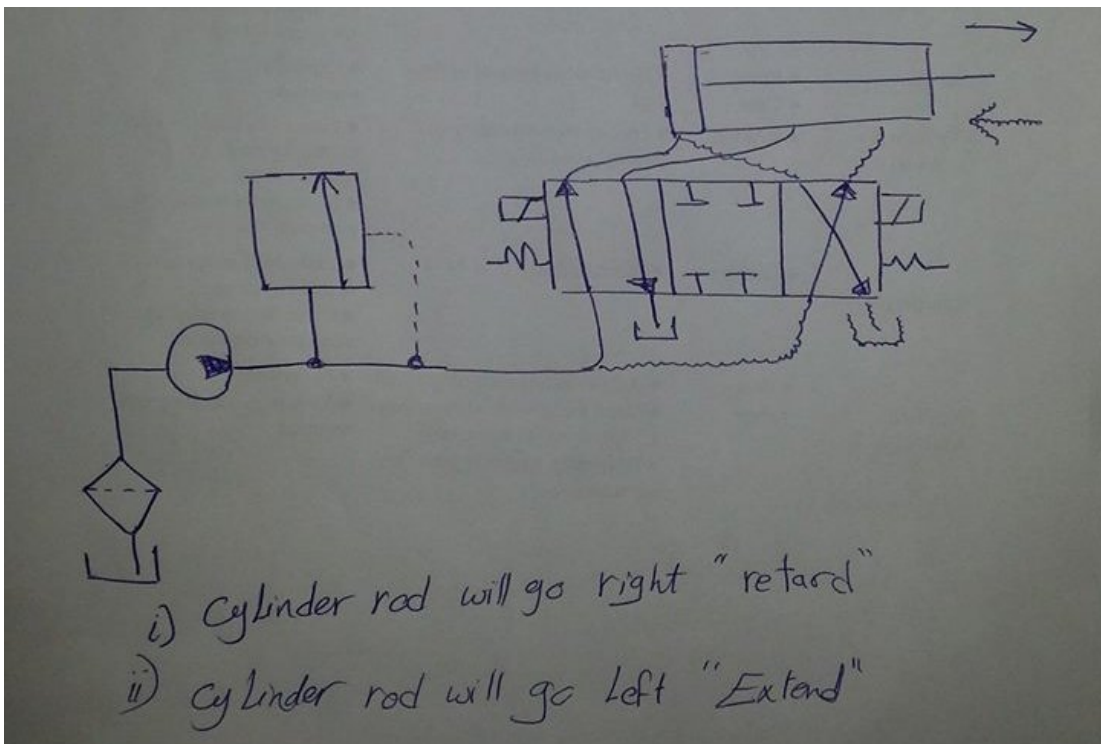 i) Cylinder rod will go right "retard"
ii) cylinder rod will go Left "Extend"